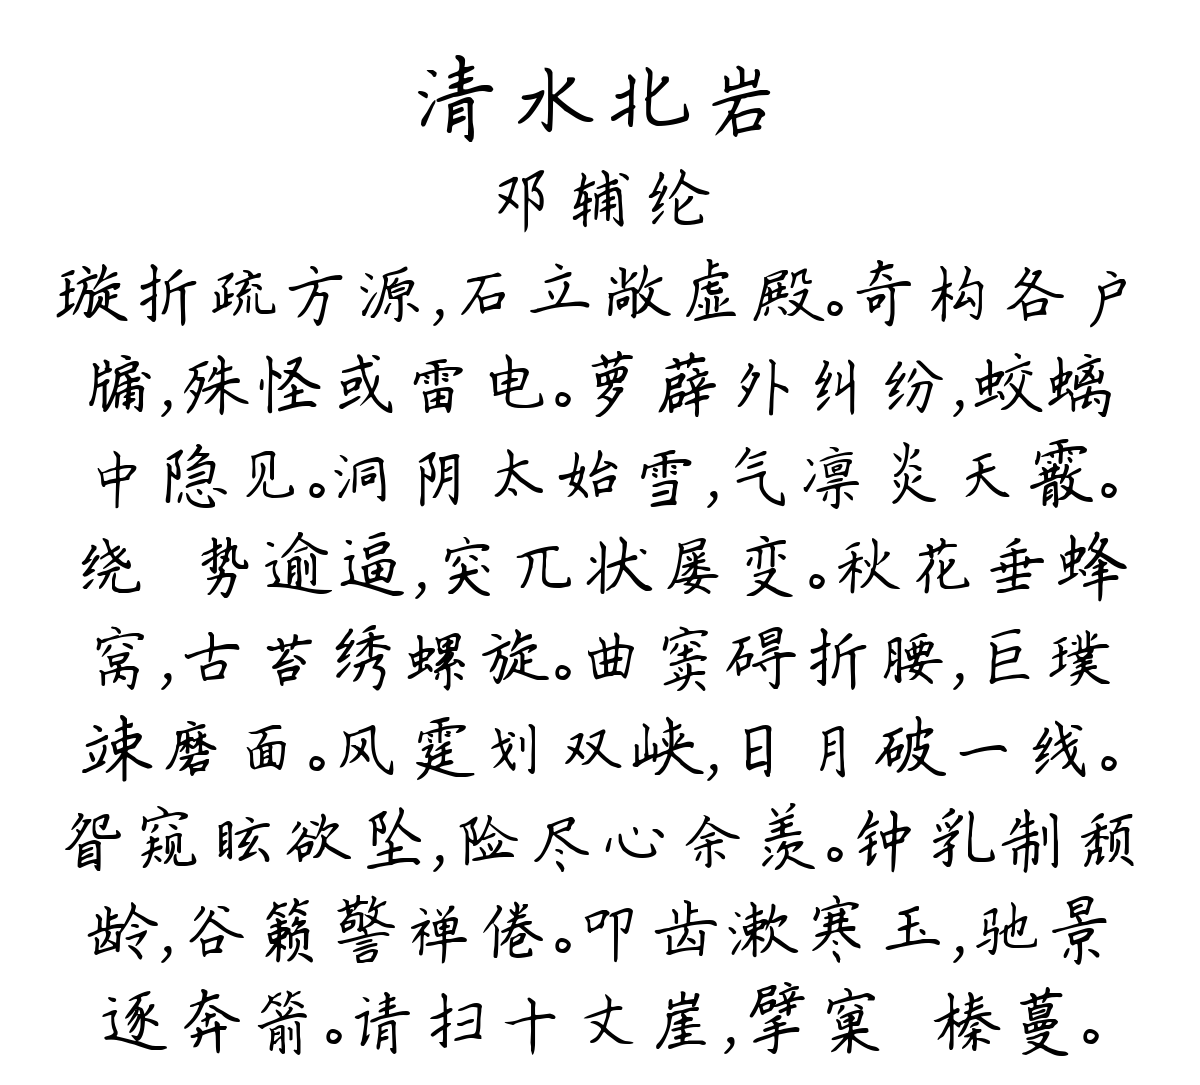 清水北岩
邓辅纶
璇折疏方源,石立敞虚殿。奇构各户
牖,殊怪或雷电。萝薜外纠纷,蛟螭
中隐见。洞阴太始雪,气凛炎天霰。
绕 势逾逼,突兀状屡变。秋花垂蜂
窝,古苔绣螺旋。曲窦碍折腰,巨璞
竦磨面。风霆划双峡,日月破一线。
眢窥眩欲坠,险尽心余羡。钟乳制颓
龄,谷籁警禅倦。叩齿漱寒玉,驰景
逐奔箭。请扫十丈崖,擘窠 榛蔓。